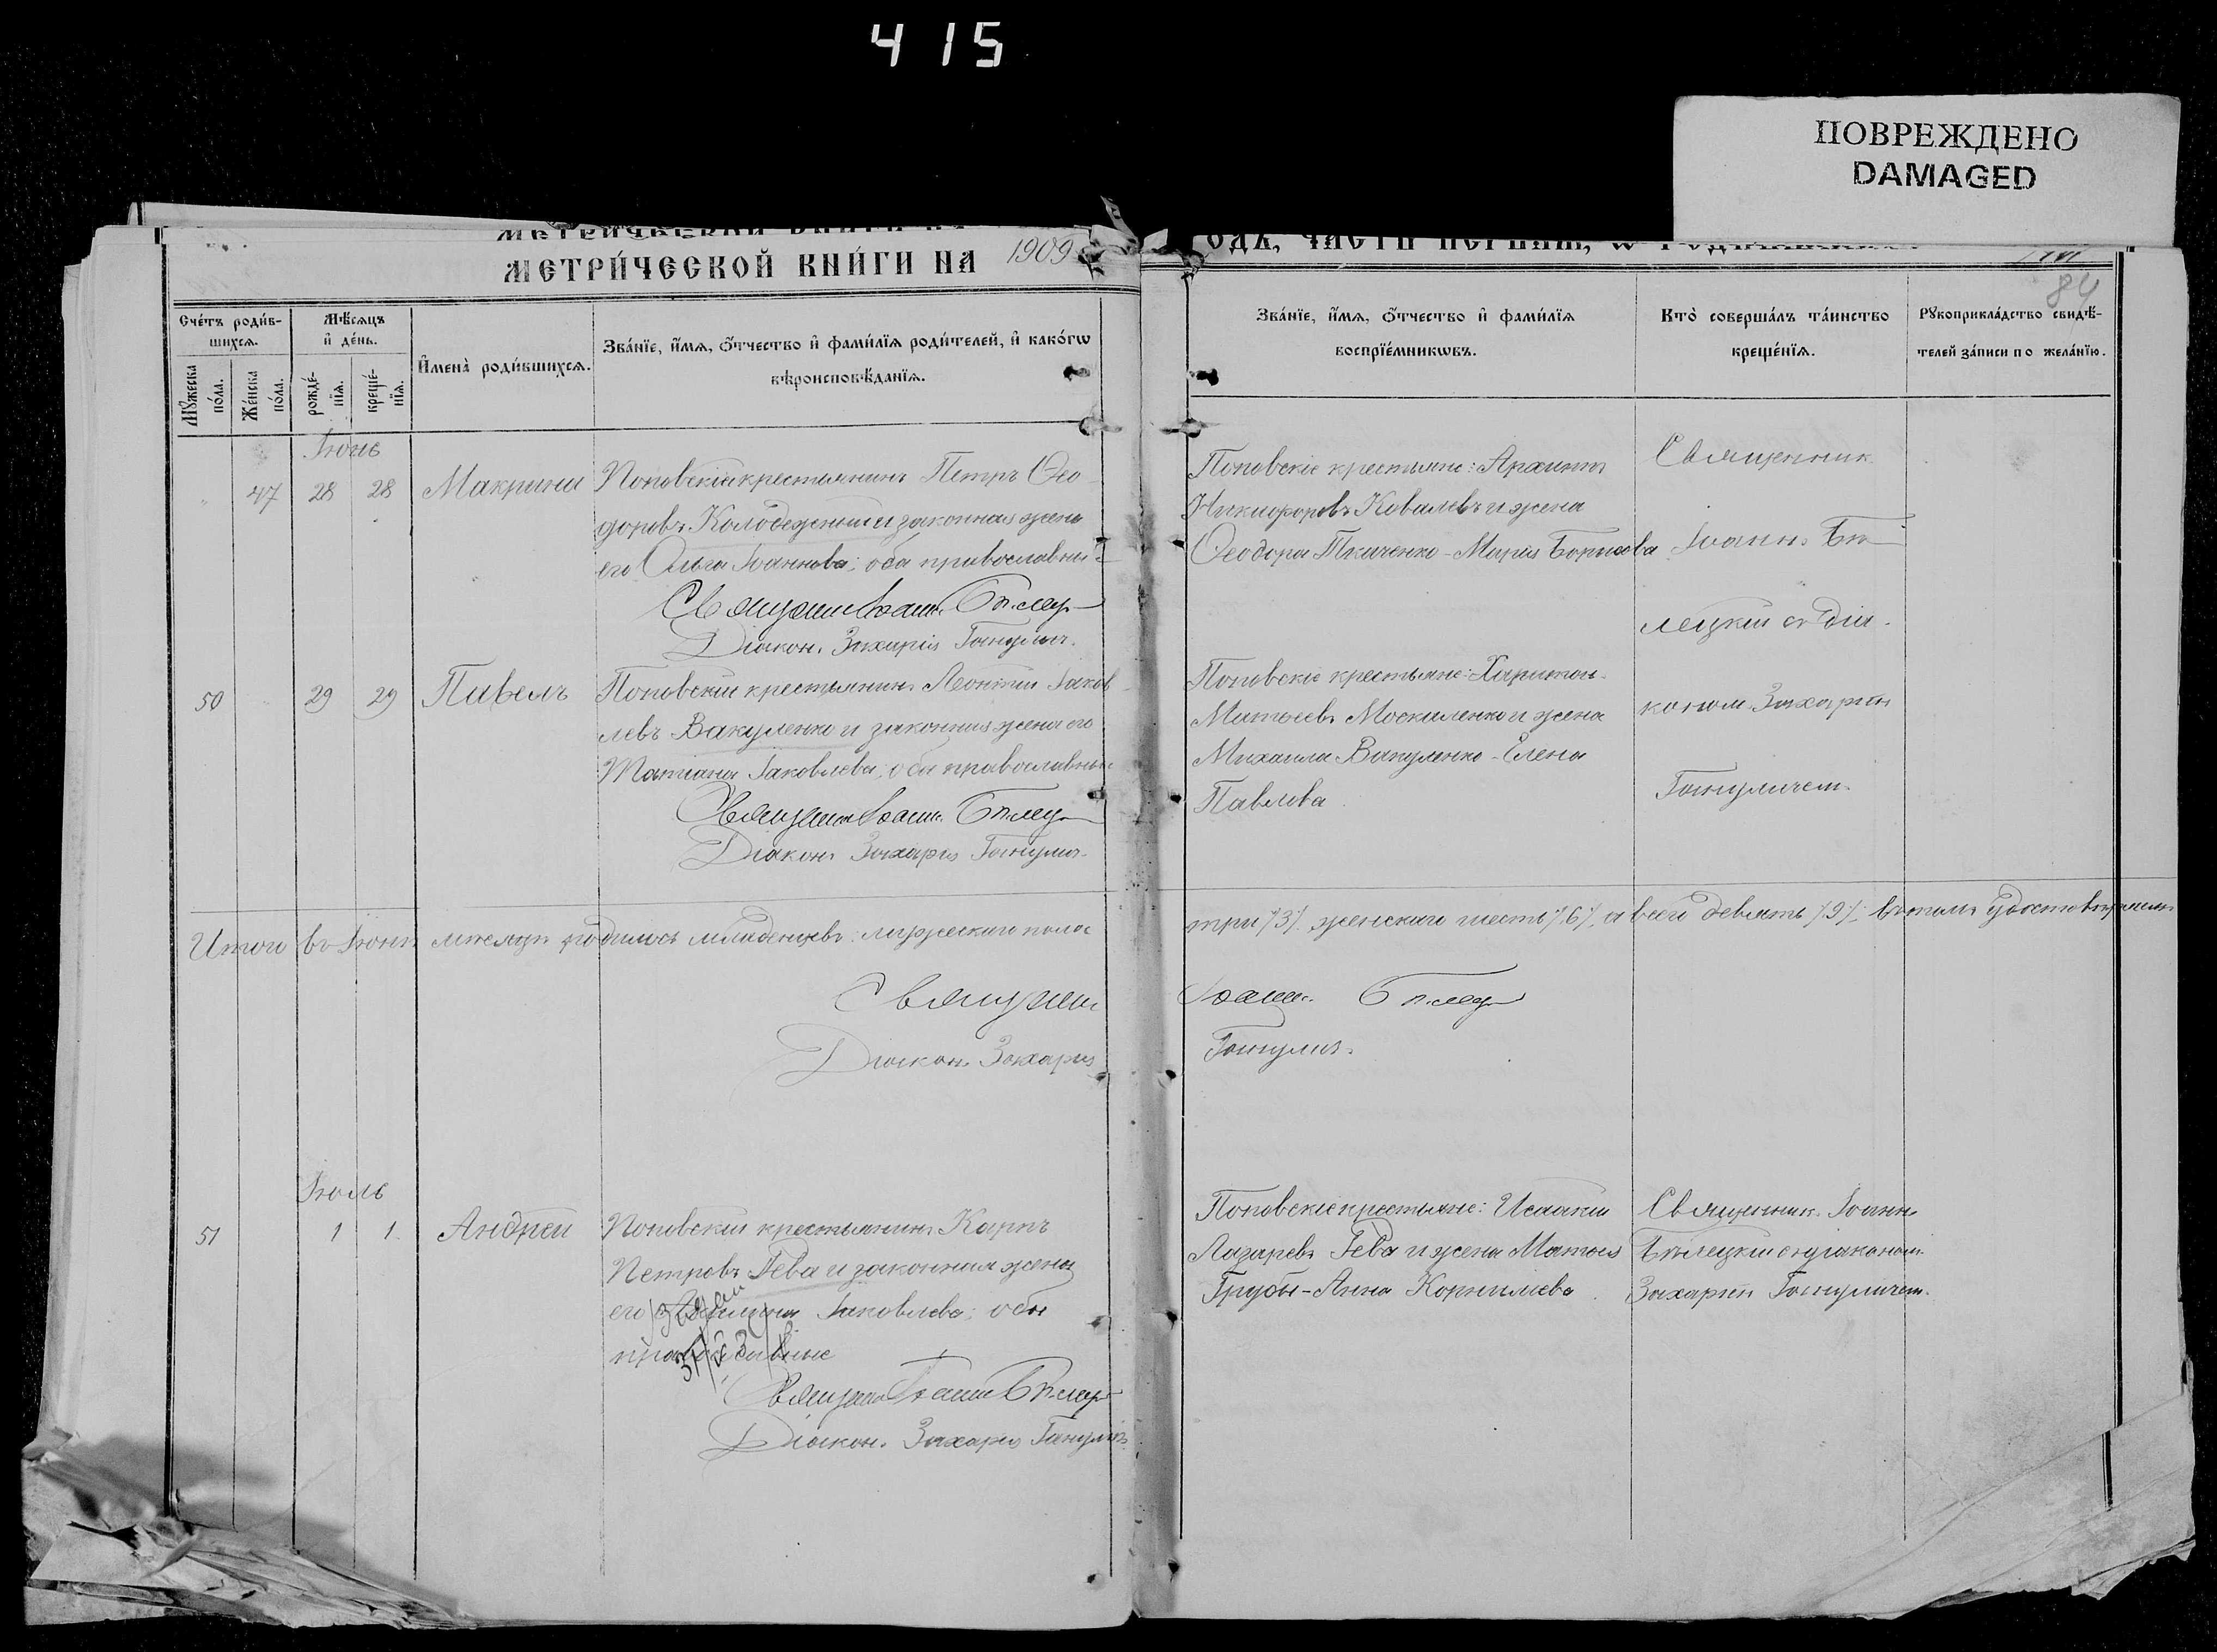 415
ПОВРЕЖДЕНО
DAMAGED
МЕТРИ́ЧЕСКОЙ КНИ́ГИ НА 1909
84
Сче́тъ роди́в-
шихсѧ.
Мѣ́сѧцъ
и҆ де́нь.
Мꙋ́жеска
по́ла.
Же́нска
по́ла.
рожде́-
нїѧ.
креще́-
нїѧ.
И҆мена̀ роди́вшихсѧ.
Зва́нїе, и҆́мѧ, ѻ҆́тчество и҆ фами́лїѧ роди́телей, и҆ како́гѡ
вѣроисповѣ́данїѧ.
Зва́нїе, и҆́мѧ, ѻ҆́тчество и҆ фами́лїѧ
воспрїе́мникѡвъ.
Кто̀ соверша́лъ та́инство
креще́нїѧ.
Рꙋкоприкла́дство свидѣ́-
телей за́писи по жела́нїю.
Іюнь
47 28 28 Макрина
Поповскій крестьянинъ Петръ Ѳео
доровъ Колодежный и законная жена
его Ольга Іоаннова; оба православные
Священникъ Іоаннъ Бѣлец
Діаконъ Захарія Гошулич
Поповскіе крестьяне: Архипъ
Никифоровъ Ковалевъ и жена
Ѳеодора Ткаченко - Марія Борисова
Священникъ
Іоаннъ Бѣ
лецкій съ діа
кономъ Захаріей
Гошуличем
50 29 29 Павелъ
Поповскій крестьянинъ Леонтій Іаков
левъ Вакуленко и законная жена его
Татіана Іаковлева; оба православные
Священникъ Іоаннъ Бѣлец
Діаконъ Захарія Гошулич
Поповскіе крестьяне: Харитонъ
Матѳеевъ Москаленко и жена
Михаила Вакуленко - Елена
Павлова
Итого въ Іюнѣ мѣсяцѣ родилось младенцевъ: мужескаго пола три /3/, женскаго шесть /6/, а всего девять /9/; въ томъ удостовѣряемъ
Священникъ Іоаннъ Бѣлец
Діаконъ Захарія Гошулич
Іюль
51 1 1 Андрей
Поповскій крестьянинъ Карпъ
Петровъ Гева и законная жена
его Іаковлева; оба
православные
Священникъ Іоаннъ Бѣлец
Діаконъ Захарія Гошулич
Поповскіе крестьяне: Исаакій
Лазаревъ Гева и жена Матѳея
Грубы - Анна Корнилиева
Священникъ Іоаннъ
Бѣлецкій съ діакономъ
Захаріей Гошуличем